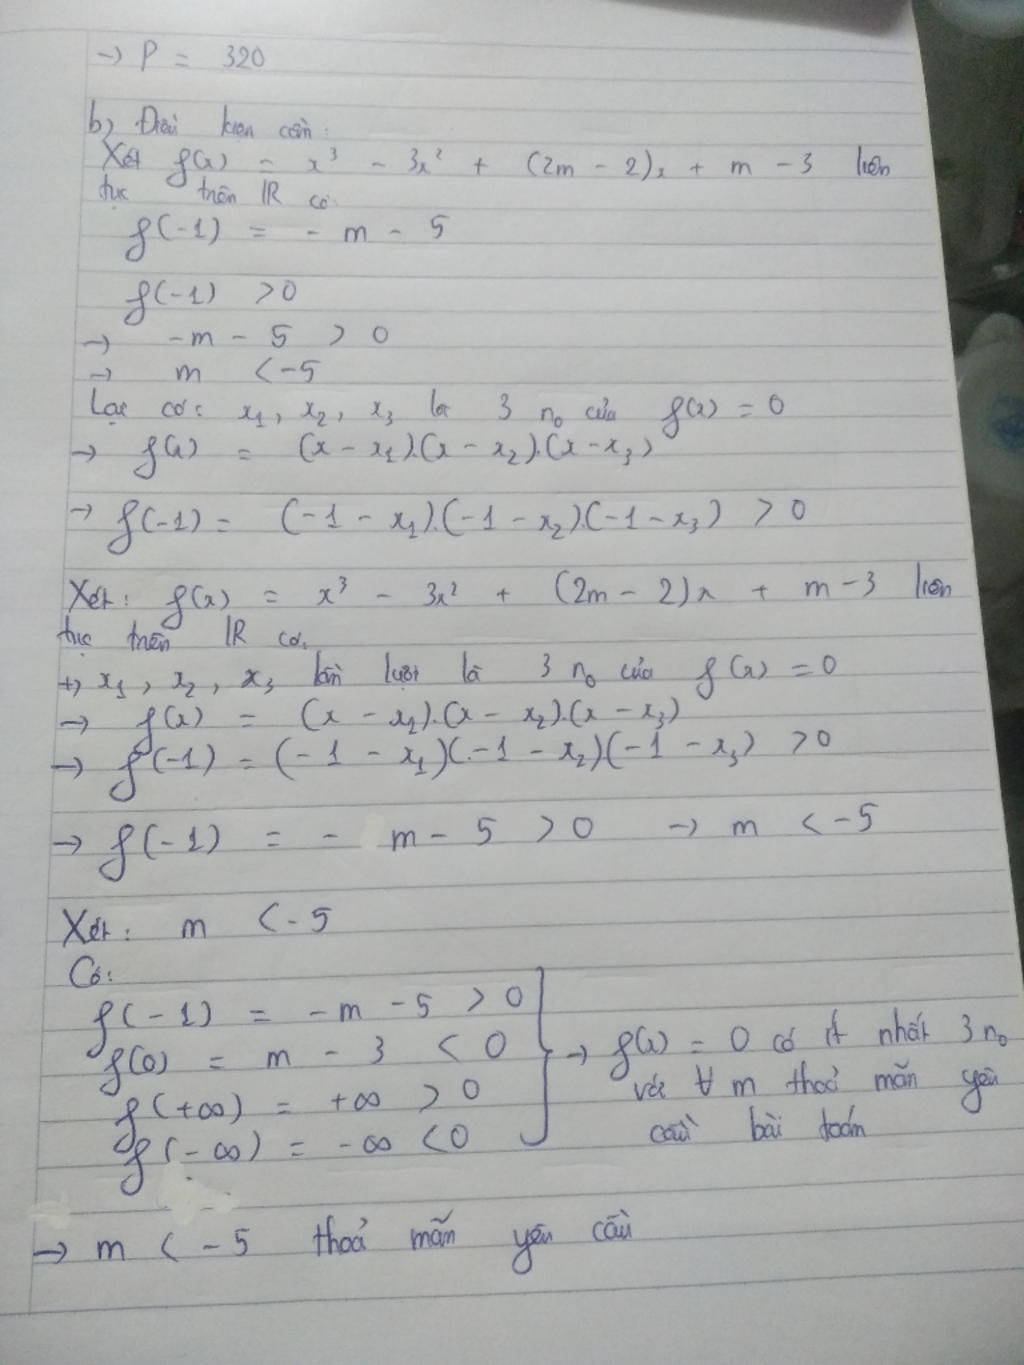 → P = 320
b, Điều kiện cần:
Xét f(x) = x³ - 3x² + (2m - 2)x + m - 3 liên
tục trên IR có:
f(-1) = - m - 5
f(-1) > 0
→ -m - 5 > 0
→ m < -5
Lại có: x₁, x₂, x₃ là 3 n₀ của f(x) = 0
→ f(x) = (x - x₁).(x - x₂).(x - x₃)
→ f(-1) = (-1 - x₁).(-1 - x₂).(-1 - x₃) > 0
Xét: f(x) = x³ - 3x² + (2m - 2)x + m - 3 liên
tục trên IR có:
+, x₁, x₂, x₃ lần lượt là 3 n₀ của f(x) = 0
→ f(x) = (x - x₁).(x - x₂).(x - x₃)
→ f(-1) = (-1 - x₁)(-1 - x₂)(-1 - x₃) > 0
→ f(-1) = - m - 5 > 0 → m < -5
Xét: m < -5
Có:
f(-1) = -m - 5 > 0
f(0) = m - 3 < 0
f(+∞) = +∞ > 0
f(-∞) = -∞ < 0
→ f(x) = 0 có ít nhất 3 n₀
với ∀ m thoả mãn yêu
cầu bài toán
→ m < -5 thoả mãn yêu cầu